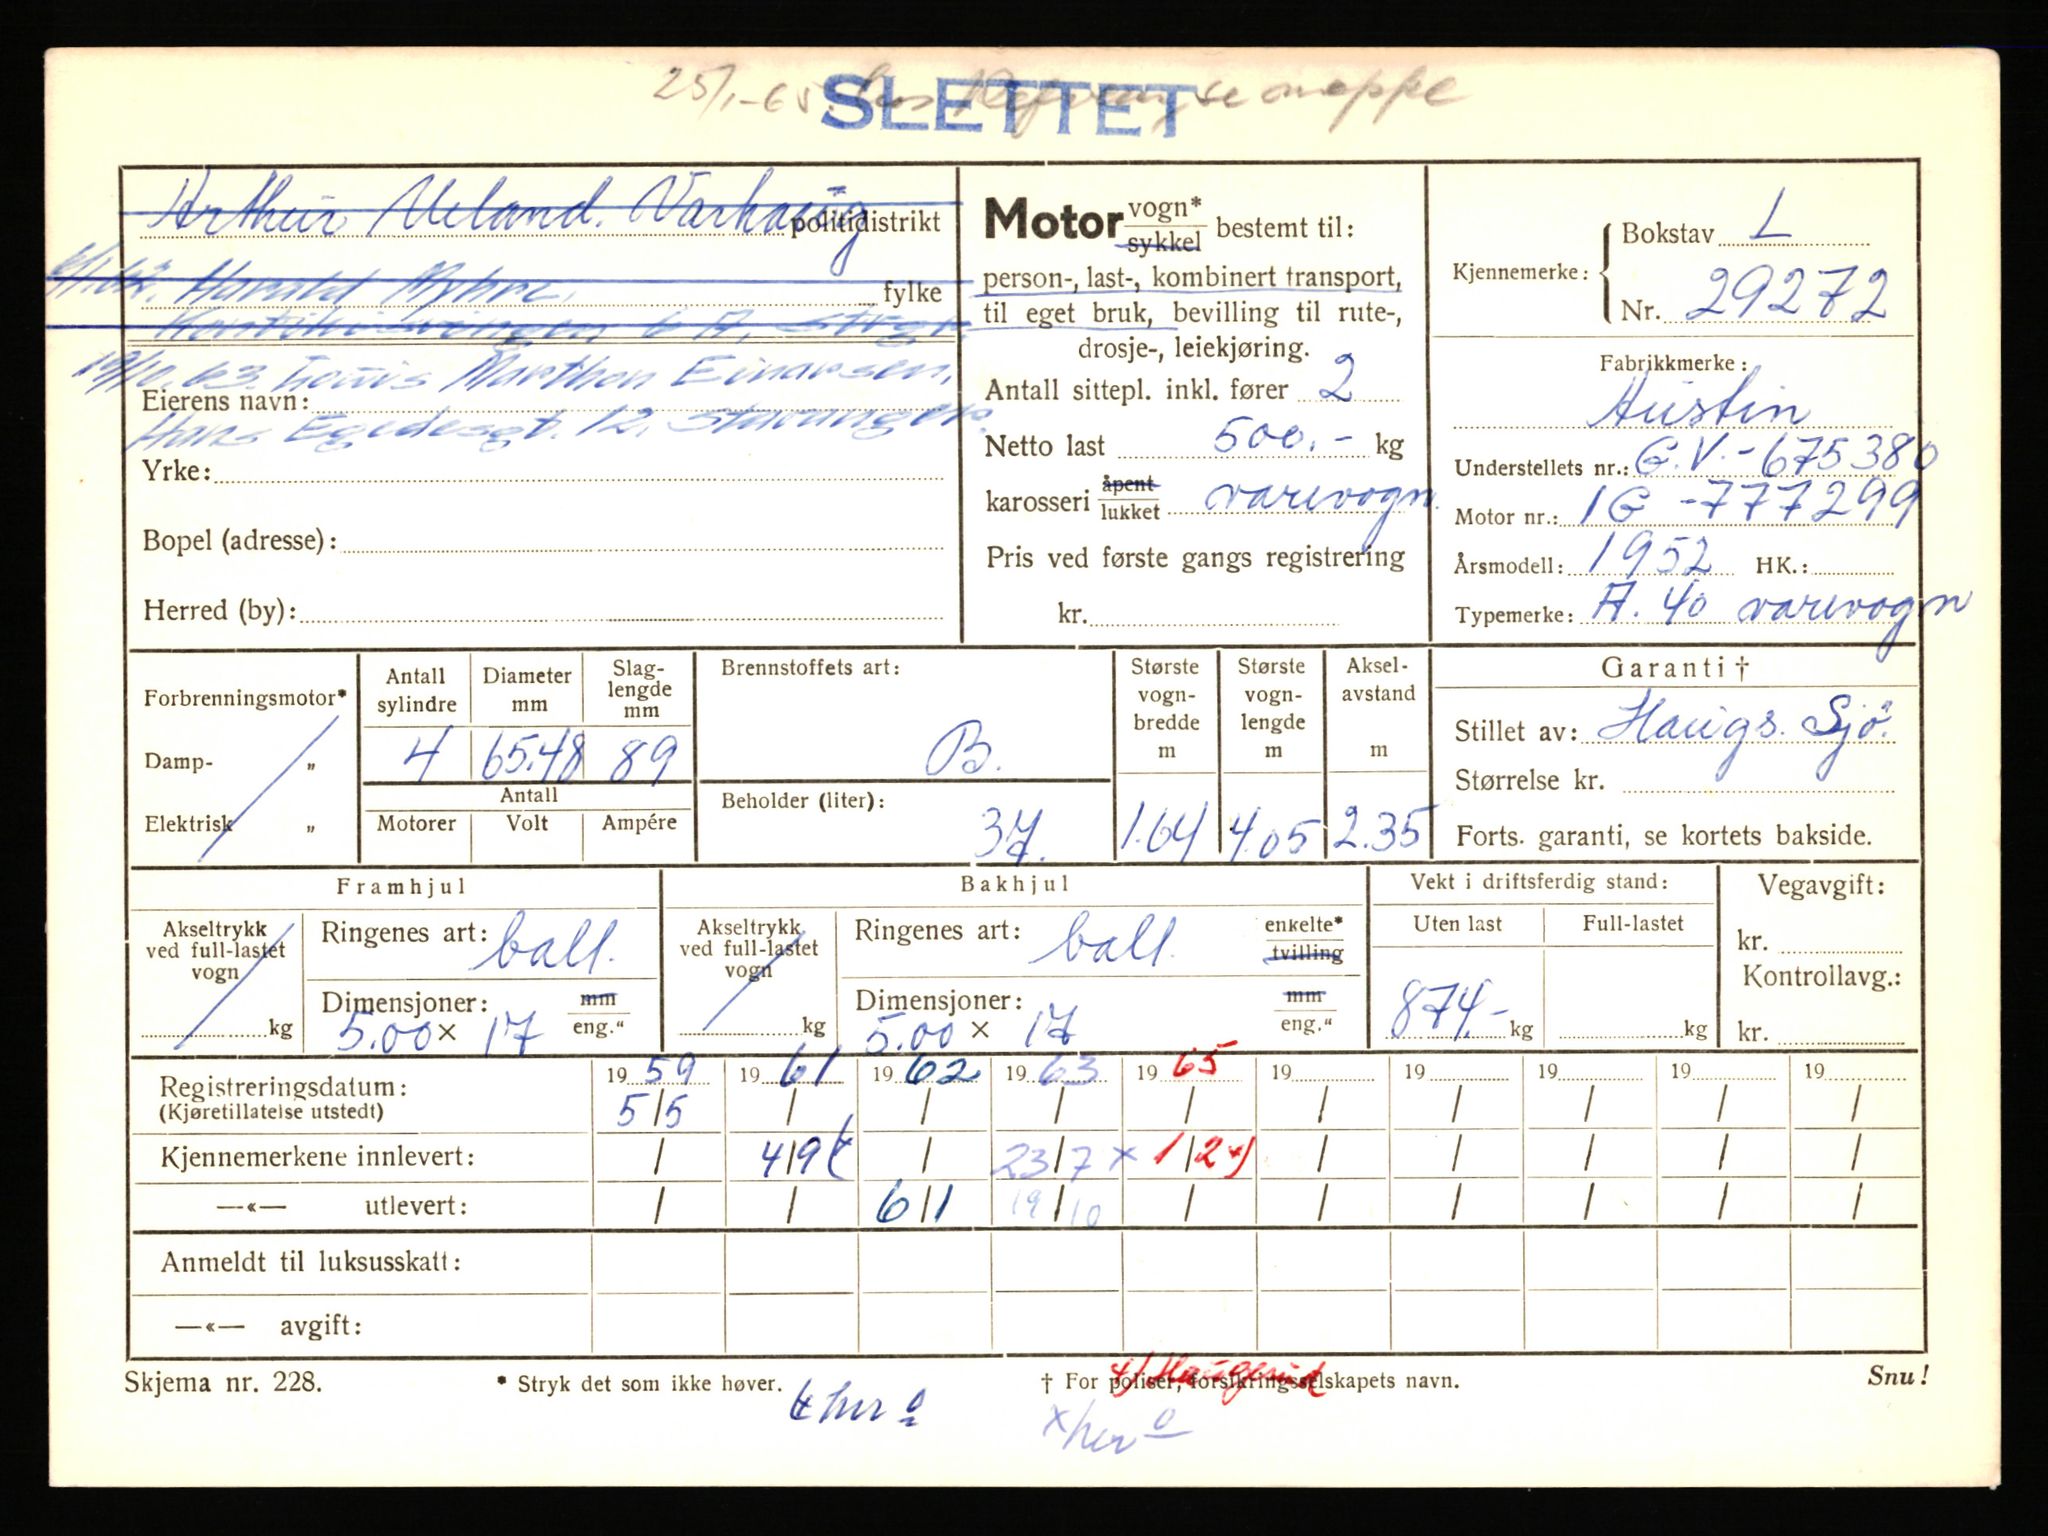 25/1-65.
SLETTET
Arthur Ueland. Varhaug politidistrikt
6/1.62. Harald Myhre. fylke
6 A,
19/10.63. Louis Marthon Einarsen,
Eierens navn:
Hans Egedesgt. 12, Stavanger.
Yrke:
Bopel (adresse):
Herred (by):
Motor vogn*
sykkel bestemt til:
person-, last-, kombinert transport,
til eget bruk, bevilling til rute-,
drosje-, leiekjøring.
Antall sittepl. inkl. fører 2
Netto last 500.- kg
karosseri åpent
lukket varevogn.
Pris ved første gangs registrering
kr.
Kjennemerke: Bokstav L
Nr. 29272
Fabrikkmerke:
Austin
Understellets nr.: G.V.-675380
Motor nr.: 1G -777299
Årsmodell: 1952 HK.:
Typemerke: A. 40 varevogn
Forbrenningsmotor*
Damp- „
Elektrisk „
Antall sylindre 4
Diameter mm 65.48
Slag-lengde mm 89
Antall
Motorer Volt Ampére
Brennstoffets art:
B.
Beholder (liter):
37.
Største vogn-bredde m 1.64
Største vogn-lengde m 4.05
Aksel-avstand m 2.35
Garanti †
Stillet av: Haugs. Sjø.
Størrelse kr.
Forts. garanti, se kortets bakside.
Framhjul
Akseltrykk ved full-lastet vogn
kg
Ringenes art: ball.
Dimensjoner: mm
5.00 × 17 eng."
Bakhjul
Akseltrykk ved full-lastet vogn
kg
Ringenes art: ball. enkelte*
tvilling
Dimensjoner: mm
5.00 × 17 eng."
Vekt i driftsferdig stand:
Uten last Full-lastet
874.- kg kg
Vegavgift:
kr.
Kontrollavg.:
kr.
Registreringsdatum: 19 59 19 61 19 62 19 63 19 65 19 19 19 19 19
(Kjøretillatelse utstedt) 5/5 / / / / / / / / /
Kjennemerkene innlevert: / 4/9 / 23/7 x 1/2 4) / / / / /
—«— utlevert: / / 6/1 19/10 / / / / / /
Anmeldt til luksusskatt:
—«— avgift:
Skjema nr. 228. * Stryk det som ikke høver. † For poliser, forsikringsselskapets navn. Snu!
4) Haugesund
her o
x her o